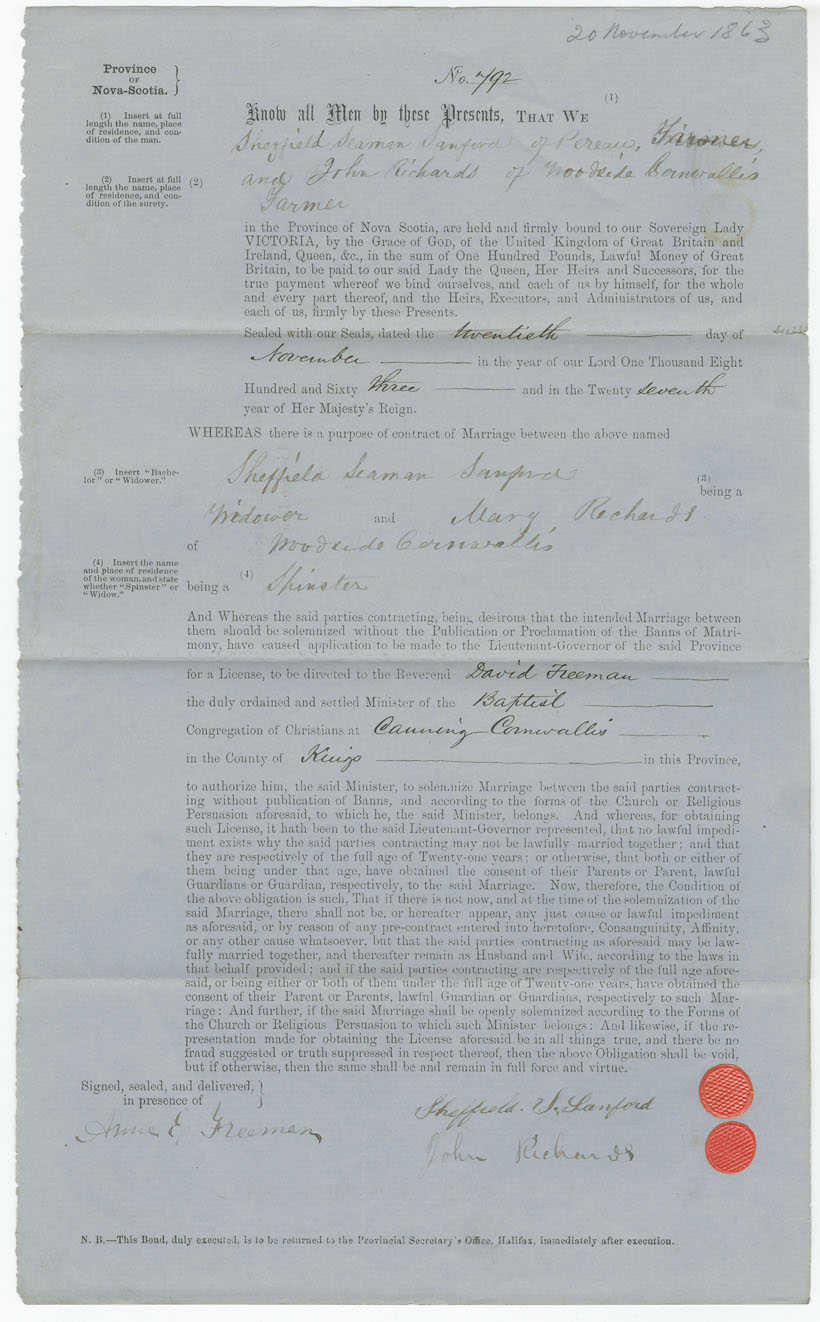 20 November 1863
Province
OF
Nova-Scotia.
No. 792
(1) Insert at full
length the name, place
of residence, and con-
dition of the man.
(1)
Know all Men by these Presents, THAT WE
Sheffield Seaman Sanford of Pereau, Farmer,
(2) Insert at full
length the name, place
of residence, and con-
dition of the surety.
(2) and John Richards of Woodside Cornwallis
Farmer
in the Province of Nova Scotia, are held and firmly bound to our Sovereign Lady
VICTORIA, by the Grace of GOD, of the United Kingdom of Great Britain and
Ireland, Queen, &c., in the sum of One Hundred Pounds, Lawful Money of Great
Britain, to be paid to our said Lady the Queen, Her Heirs and Successors, for the
true payment whereof we bind ourselves, and each of us by himself, for the whole
and every part thereof, and the Heirs, Executors, and Administrators of us, and
each of us, firmly by these Presents.
Sealed with our Seals, dated the twentieth day of
November in the year of our Lord One Thousand Eight
Hundred and Sixty three and in the Twenty seventh
year of Her Majesty's Reign.
WHEREAS there is a purpose of contract of Marriage between the above named
(3) Insert "Bache-
lor" or "Widower."
Sheffield Seaman Sanford (3)
being a
Widower and Mary Richards
of Woodside Cornwallis
(4) Insert the name
and place of residence
of the woman, and state
whether "Spinster" or
"Widow."
being a (4) Spinster
And Whereas the said parties contracting, being desirous that the intended Marriage between
them should be solemnized without the Publication or Proclamation of the Banns of Matri-
mony, have caused application to be made to the Lieutenant-Governor of the said Province
for a License, to be directed to the Reverend David Freeman
the duly ordained and settled Minister of the Baptist
Congregation of Christians at Canning Cornwallis
in the County of Kings in this Province,
to authorize him, the said Minister, to solemnize Marriage between the said parties contract-
ing without publication of Banns, and according to the forms of the Church or Religious
Persuasion aforesaid, to which he, the said Minister, belongs. And whereas, for obtaining
such License, it hath been to the said Lieutenant-Governor represented, that no lawful impedi-
ment exists why the said parties contracting may not be lawfully married together; and that
they are respectively of the full age of Twenty-one years; or otherwise, that both or either of
them being under that age, have obtained the consent of their Parents or Parent, lawful
Guardians or Guardian, respectively, to the said Marriage. Now, therefore, the Condition of
the above obligation is such, That if there is not now, and at the time of the solemnization of the
said Marriage, there shall not be, or hereafter appear, any just cause or lawful impediment
as aforesaid, or by reason of any pre-contract entered into heretofore, Consanguinity, Affinity,
or any other cause whatsoever, but that the said parties contracting as aforesaid may be law-
fully married together, and thereafter remain as Husband and Wife, according to the laws in
that behalf provided; and if the said parties contracting are respectively of the full age afore-
said, or being either or both of them under the full age of Twenty-one years, have obtained the
consent of their Parent or Parents, lawful Guardian or Guardians, respectively to such Mar-
riage: And further, if the said Marriage shall be openly solemnized according to the Forms of
the Church or Religious Persuasion to which such Minister belongs: And likewise, if the re-
presentation made for obtaining the License aforesaid be in all things true, and there be no
fraud suggested or truth suppressed in respect thereof, then the above Obligation shall be void,
but if otherwise, then the same shall be and remain in full force and virtue.
Signed, sealed, and delivered,
in presence of
Anne E Freeman
Sheffield. S. Sanford
John Richards
N. B.—This Bond, duly executed, is to be returned to the Provincial Secretary's Office, Halifax, immediately after execution.